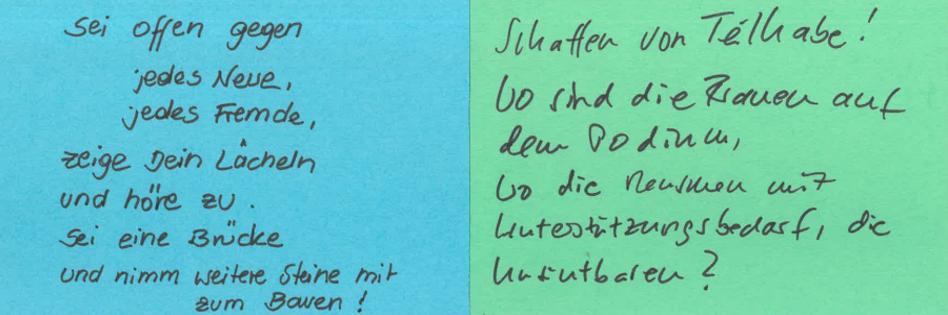 Sei offen gegen
jedes Neue,
jedes Fremde,
zeige Dein Lächeln
und höre zu.
Sei eine Brücke
und nimm weitere Steine mit
zum Bauen!
Schaffen von Teilhabe!
Wo sind die Frauen auf
dem Podium,
wo die Menschen mit
Unterstützungsbedarf, die
Unsichtbaren?